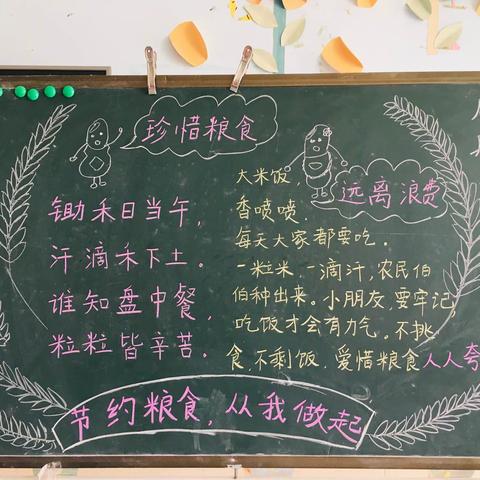 珍惜粮食
锄禾日当午，
汗滴禾下土。
谁知盘中餐，
粒粒皆辛苦。
远离浪费
大米饭，
香喷喷，
每天大家都要吃。
一粒米，一滴汗，农民伯
伯种出来。小朋友，要牢记，
吃饭才会有力气。不挑
食，不剩饭，爱惜粮食人人夸
节约粮食，从我做起